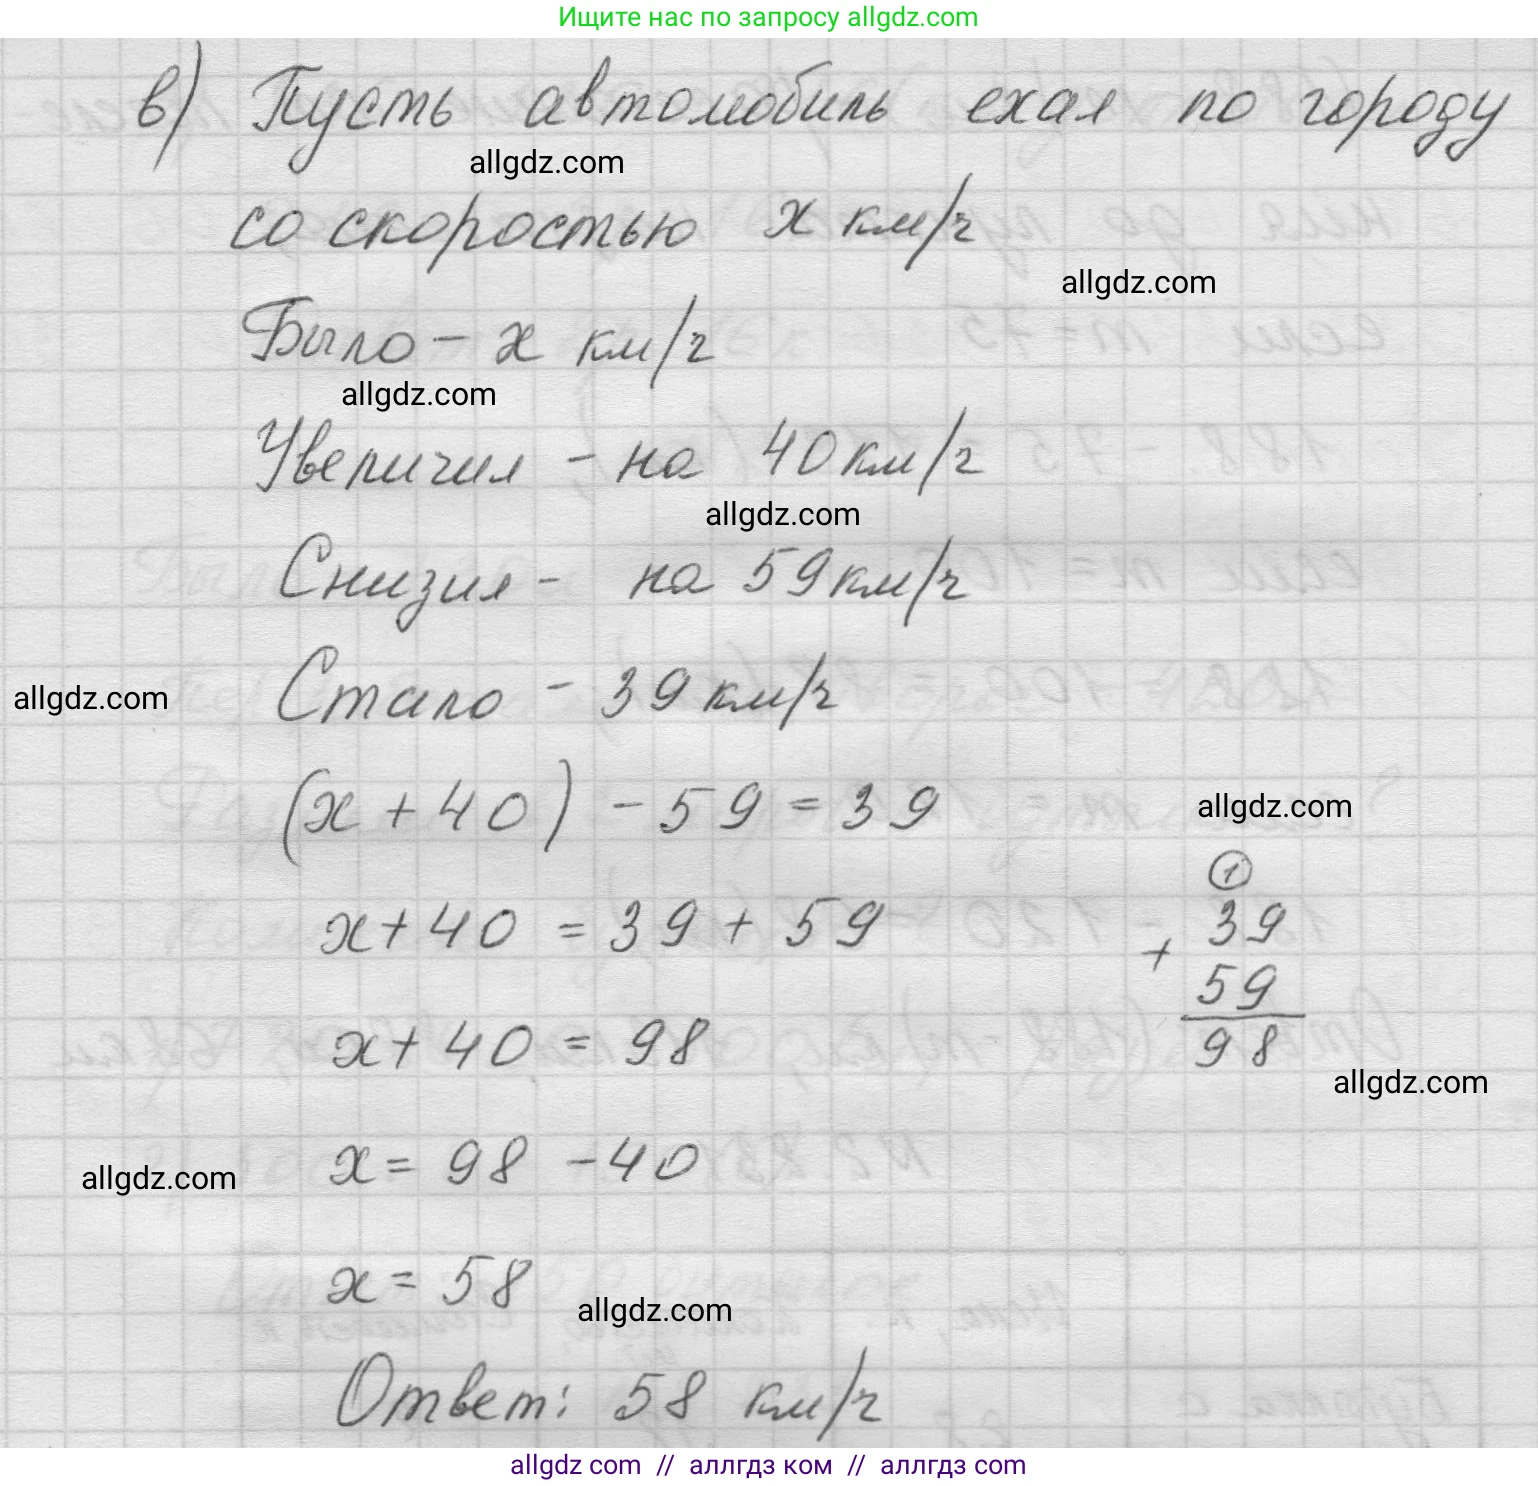 Ищите нас по запросу allgdz.com
в) Пусть автомобиль ехал по городу
allgdz.com
со скоростью x км/ч
allgdz.com
Было - x км/ч
allgdz.com
Увеличил - на 40 км/ч
allgdz.com
Снизил - на 59 км/ч
Стало - 39 км/ч
allgdz.com
(x + 40) - 59 = 39
allgdz.com
x + 40 = 39 + 59
1
39
+
59
98
x + 40 = 98
allgdz.com
x = 98 - 40
allgdz.com
x = 58
allgdz.com
Ответ: 58 км/ч
allgdz com // аллгдз ком // аллгдз com